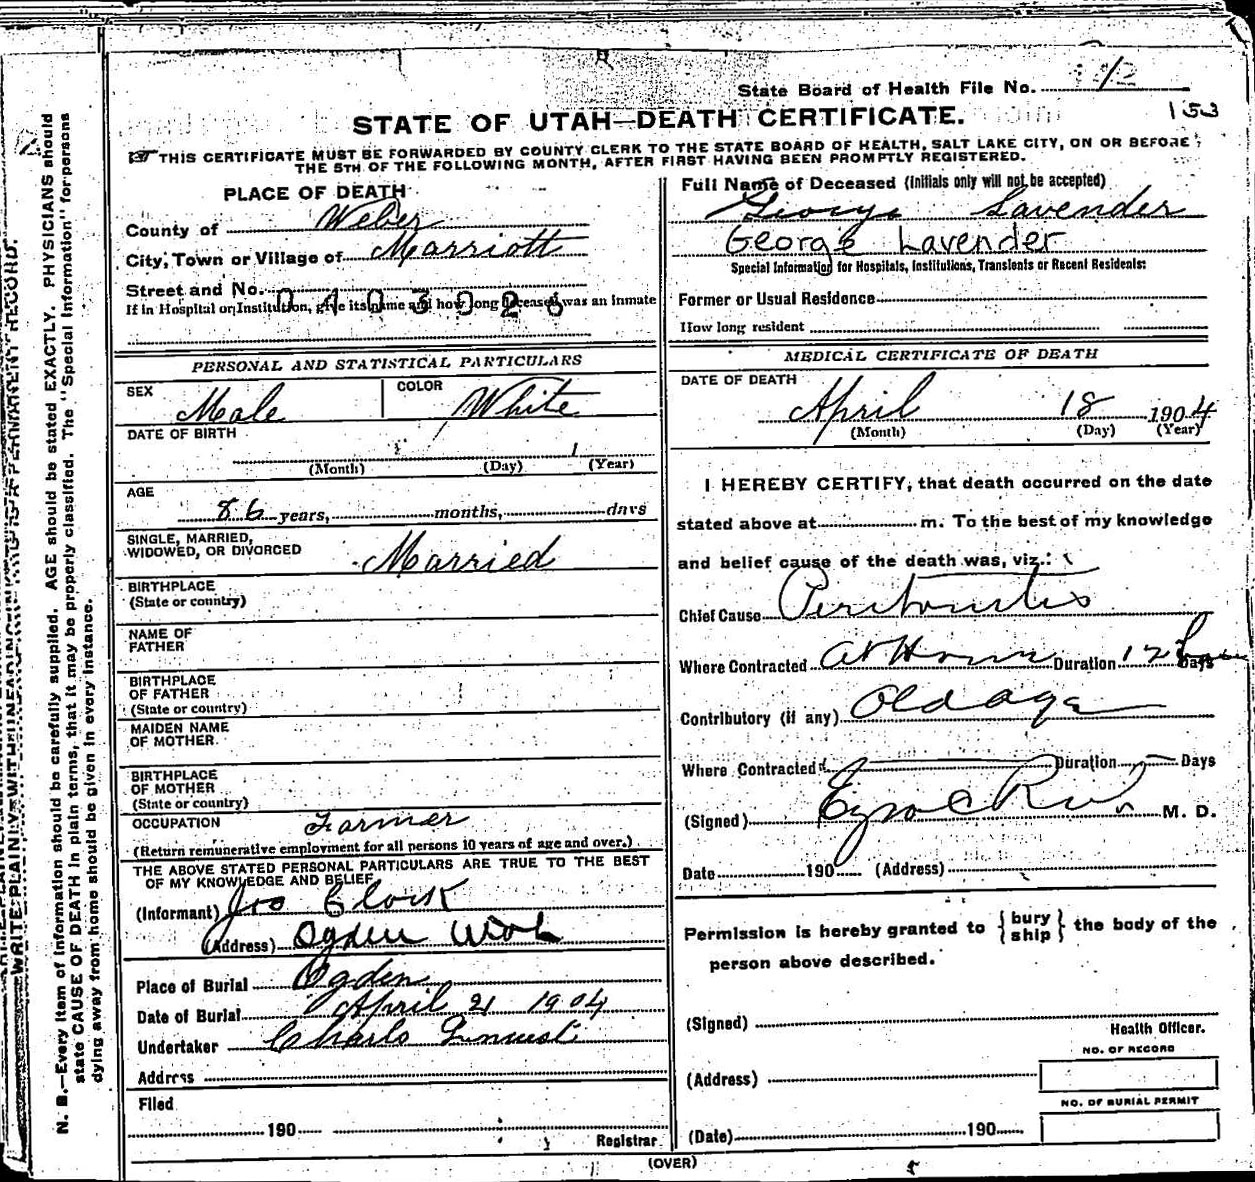 State Board of Health File No.
153
STATE OF UTAH—DEATH CERTIFICATE.
THIS CERTIFICATE MUST BE FORWARDED BY COUNTY CLERK TO THE STATE BOARD OF HEALTH, SALT LAKE CITY, ON OR BEFORE
THE 5TH OF THE FOLLOWING MONTH, AFTER FIRST HAVING BEEN PROMPTLY REGISTERED.
PLACE OF DEATH
County of Weber
City, Town or Village of Marriott
Street and No.
0403026
If in Hospital or Institution, give its name and how long deceased was an inmate
PERSONAL AND STATISTICAL PARTICULARS
SEX Male COLOR White
DATE OF BIRTH
(Month) (Day) (Year)
AGE
86 years, months, days
SINGLE, MARRIED,
WIDOWED, OR DIVORCED Married
BIRTHPLACE
(State or country)
NAME OF
FATHER
BIRTHPLACE
OF FATHER
(State or country)
MAIDEN NAME
OF MOTHER
BIRTHPLACE
OF MOTHER
(State or country)
OCCUPATION Farmer
(Return remunerative employment for all persons 10 years of age and over.)
THE ABOVE STATED PERSONAL PARTICULARS ARE TRUE TO THE BEST
OF MY KNOWLEDGE AND BELIEF
(Informant) Jno Clark
(Address) Ogden Utah
Place of Burial Ogden
Date of Burial April 21 1904
Undertaker
Address
Filed
190
Registrar
Full Name of Deceased (Initials only will not be accepted)
George Lavender
George Lavender
Special Information for Hospitals, Institutions, Transients or Recent Residents:
Former or Usual Residence
How long resident
MEDICAL CERTIFICATE OF DEATH
DATE OF DEATH
April 18 1904
(Month) (Day) (Year)
I HEREBY CERTIFY, that death occurred on the date
stated above at m. To the best of my knowledge
and belief cause of the death was, viz.:
Chief Cause Peritonitis
Where Contracted at Home Duration 12 Days
Contributory (if any) Old age
Where Contracted Duration Days
(Signed) M. D.
Date 190 (Address)
Permission is hereby granted to {bury ship} the body of the
person above described.
(Signed)
Health Officer.
NO. OF RECORD
(Address)
NO. OF BURIAL PERMIT
(Date) 190
(OVER)
WRITE PLAINLY WITH UNFADING INK THIS IS A PERMANENT RECORD.
N. B.—Every item of information should be carefully supplied. AGE should be stated EXACTLY. PHYSICIANS should
state CAUSE OF DEATH in plain terms, that it may be properly classified. The "Special Information" for persons
dying away from home should be given in every instance.